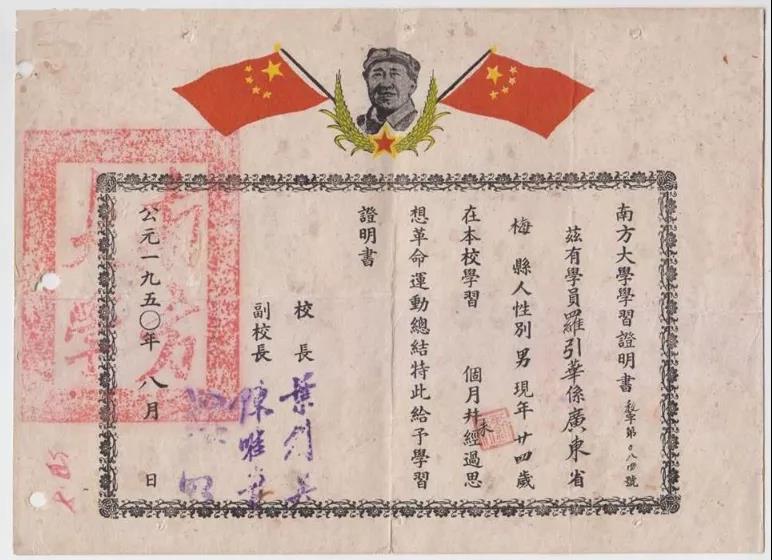 南方大學學習證明書 字第〇八四號
茲有學員羅引華係廣東省
梅縣人性別男現年廿四歲
在本校學習 個月并未經過思
想革命運動總結特此給予學習
證明書
校長 葉劍英
副校長 陳唯實
公元一九五〇年八月 日
南方大學